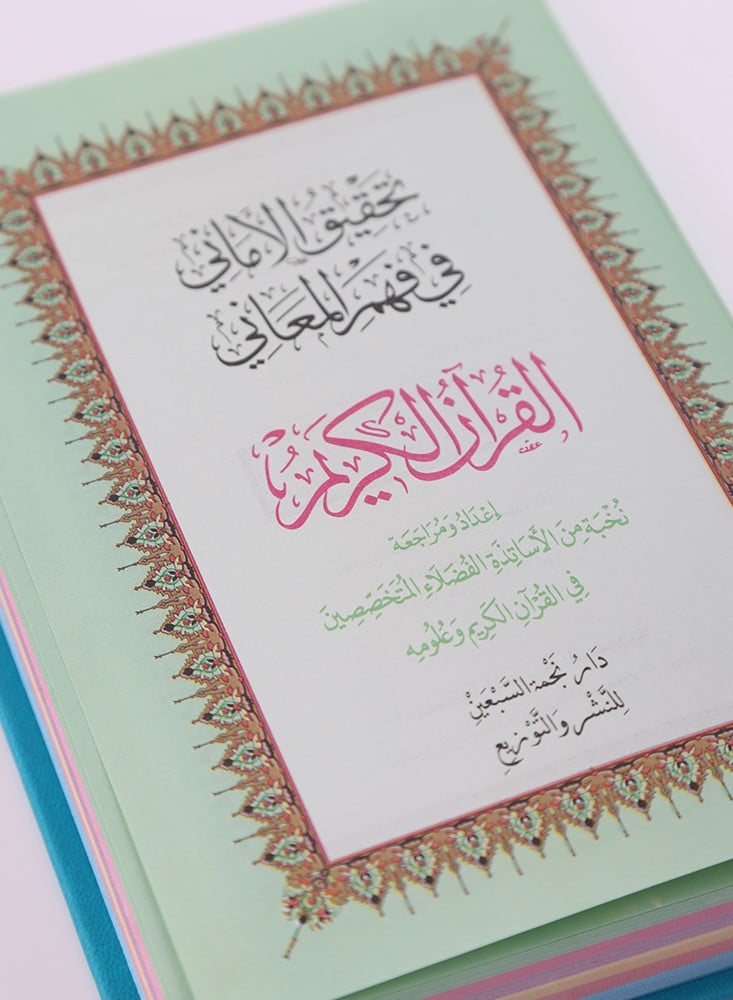 تَحْقِيْقُ الأَمَانِي
فِي فَهْمِ المَعَانِي
القُرْآنُ الكَرِيْمُ
إعْدَادُ وَمُرَاجَعَة
نُخْبَة مِنَ الأَسَاتِذَةِ الفُضَلَاءِ المُتَخَصِّصِينَ
فِي القُرْآنِ الكَرِيْمِ وَعُلُومِه
دَارُ نَجْمَة السَّبْعَيْنِ
لِلنَّشْرِ وَالتَّوْزِيعِ